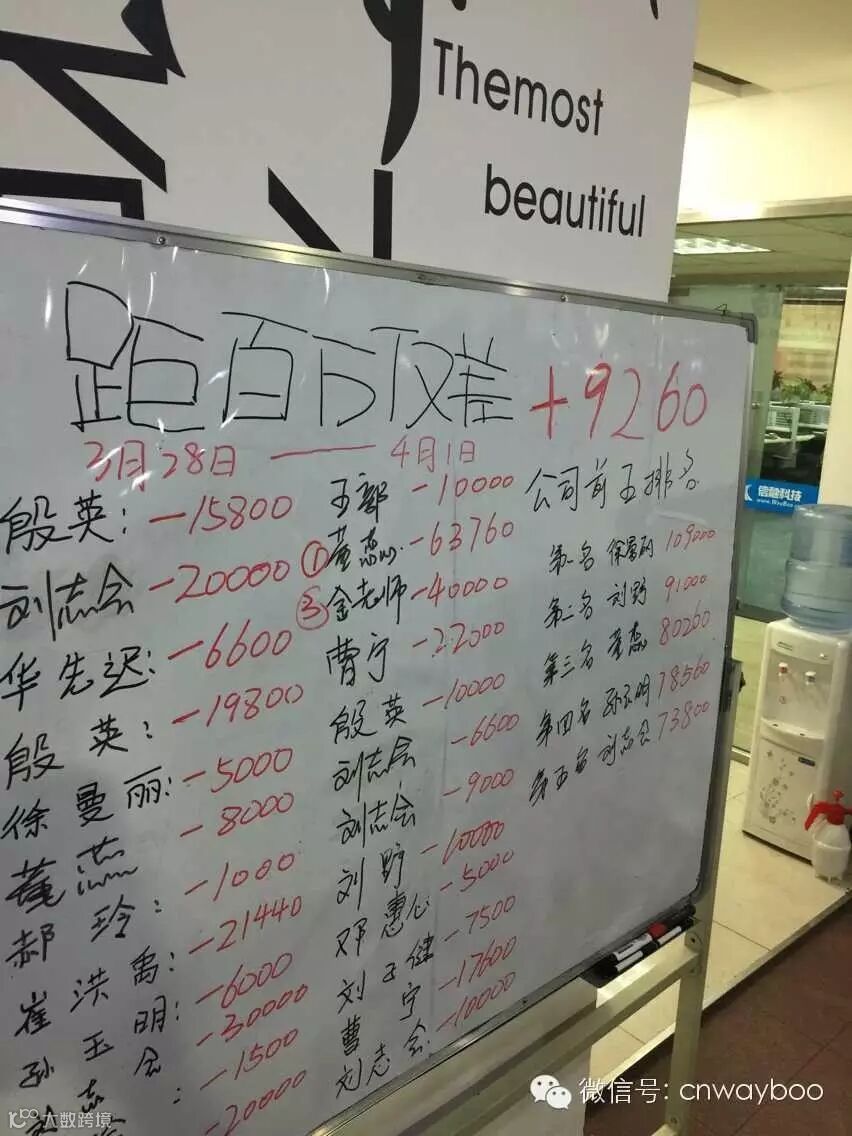 Themost
beautiful
距百万仅差 +9260
3月28日 — 4月1日
殷英: -15800
刘志会 -20000
华先迟: -6600
殷英: -19800
徐曼丽: -5000
董燕 -8000
郝玲: -1000
崔洪禹: -21440
孙玉明: -6000
-30000
-1500
-20000
王部 -10000
①董燕 -63760
③金老师 -40000
曹宁 -22000
殷英 -10000
刘志会 -6600
刘志会 -9000
刘野 -10000
邓惠心 -5000
刘玉健 -7500
曹宁 -17600
刘志会: -10000
公司前五排名
第一名 徐曼丽 109000
第二名 刘野 91000
第三名 董燕 80260
第四名 孙玉明 78560
第五名 刘志会 73800
信融科技
微信号: cnwayboo
大数跨境